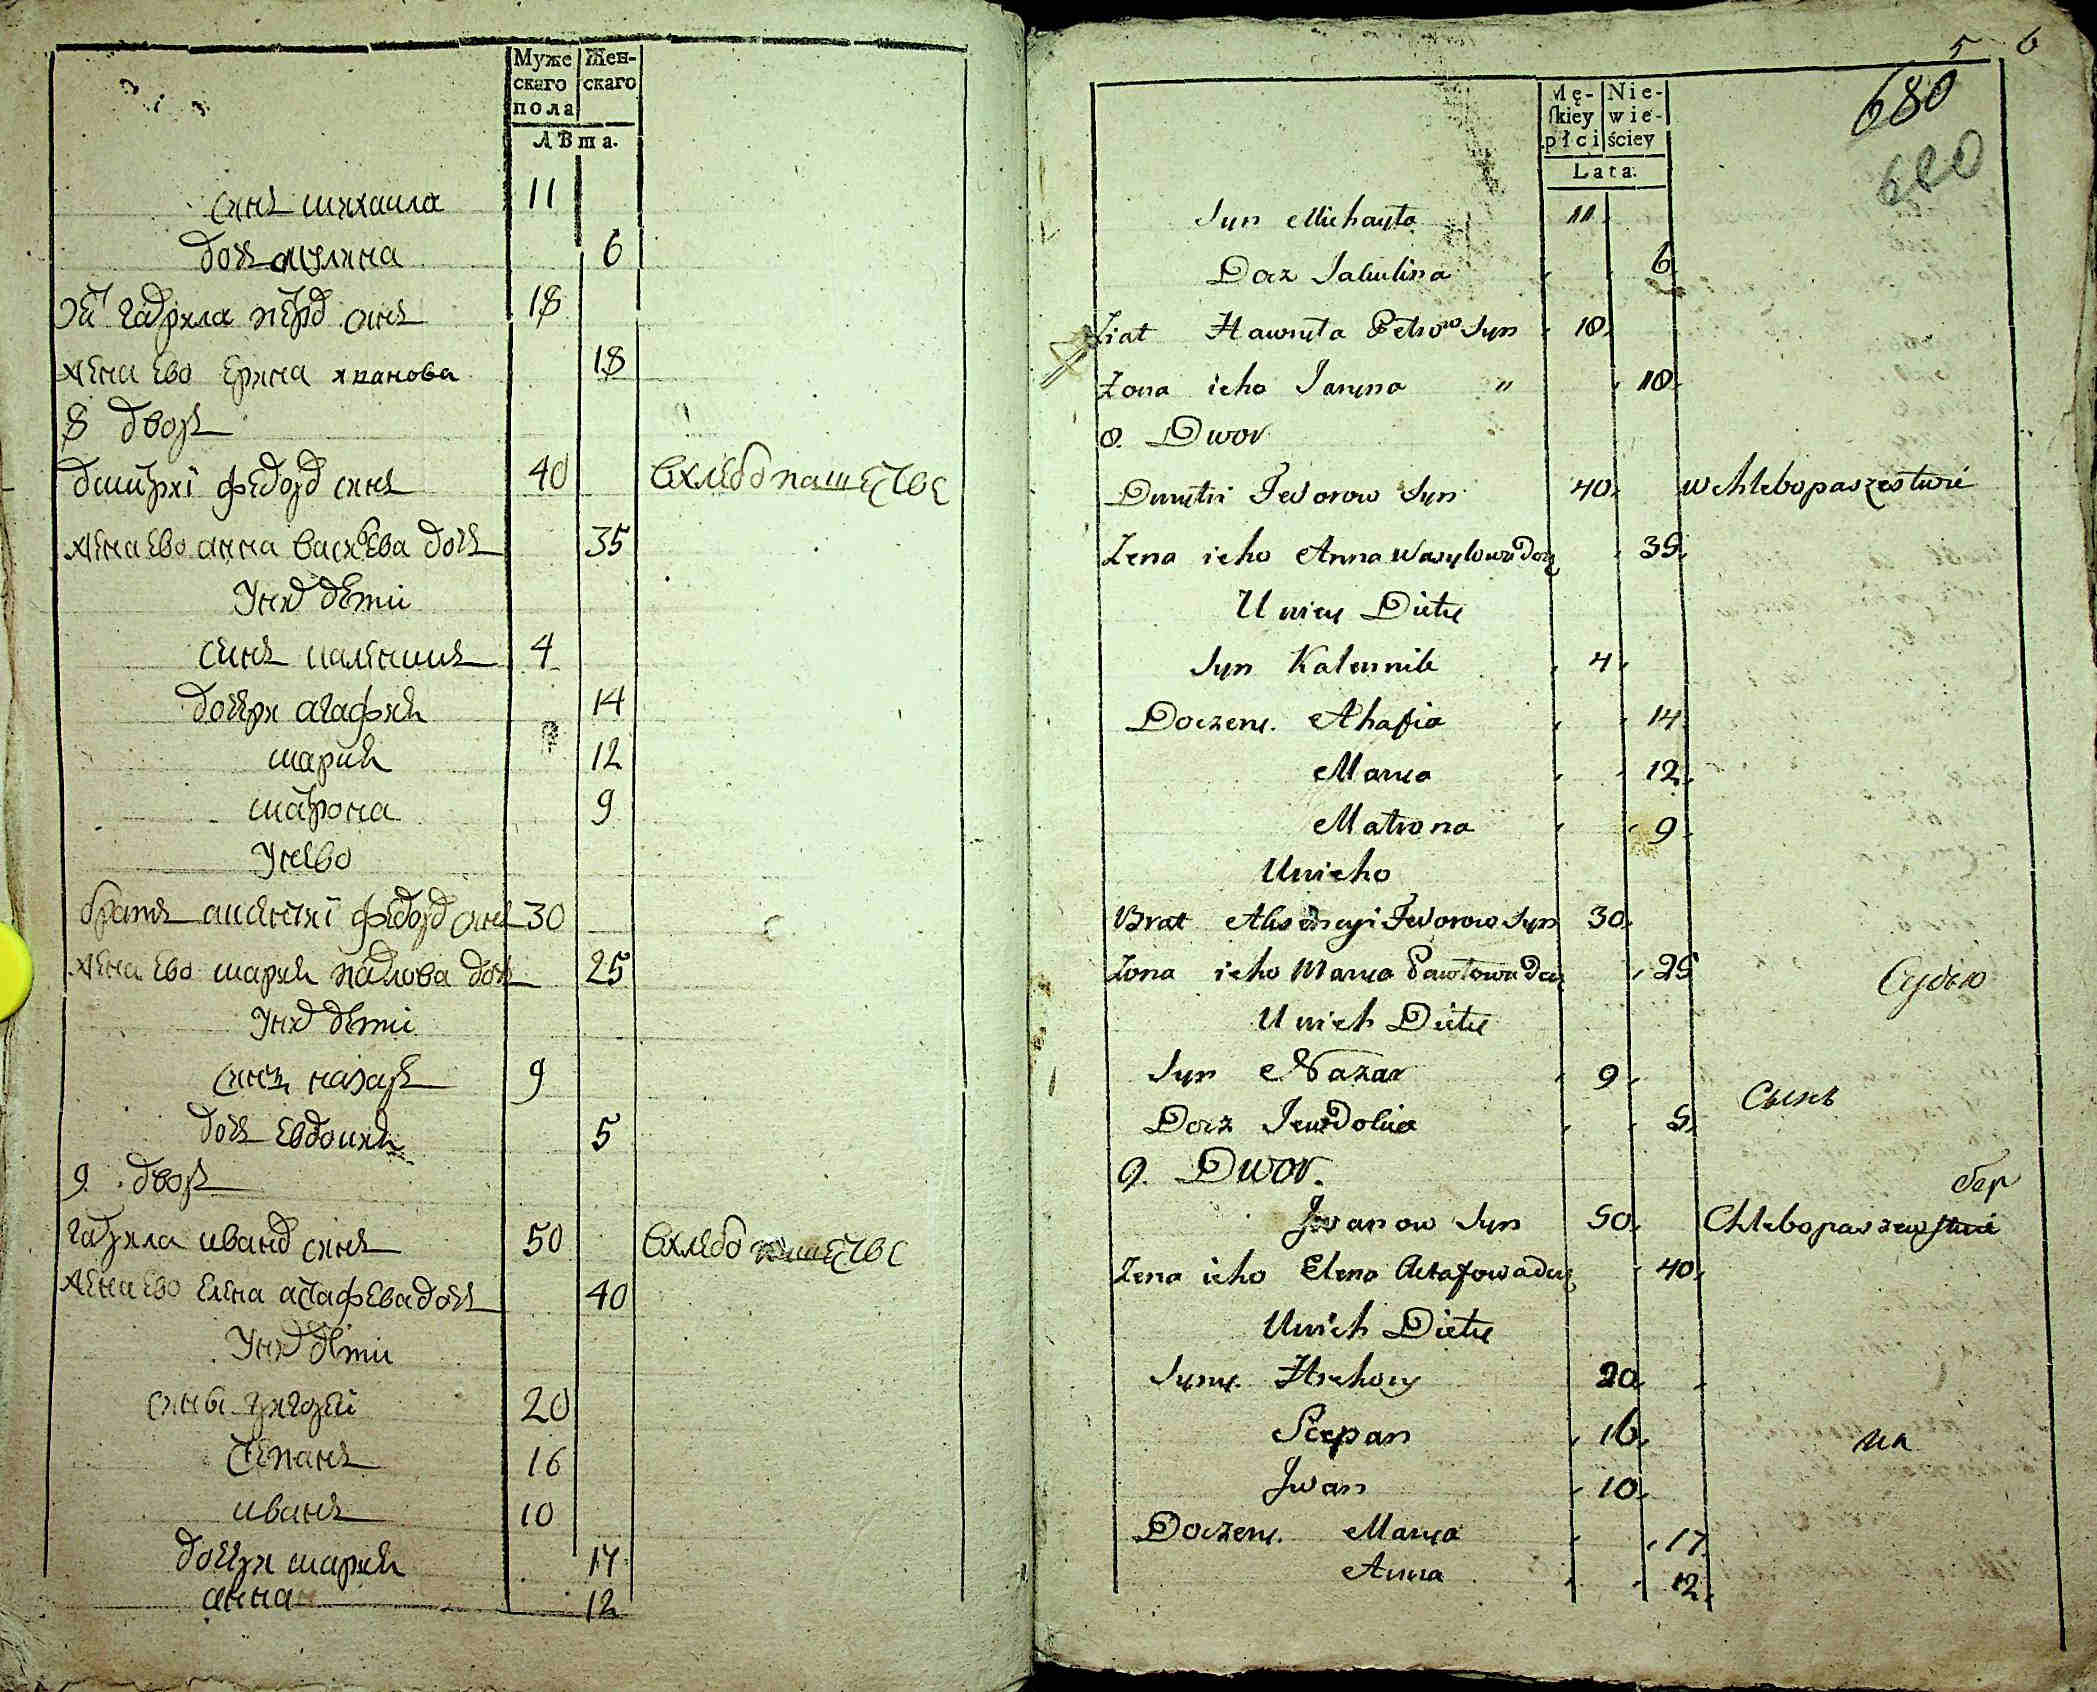 Муже Жен-
скаго скаго
пола
Лѣта.
синъ михаила 11
дочъ акулина 6
зят гаврила петров синъ 18
жена ево ерина иванова 18
8 дворъ
дмитрхі федоров синъ 40 вхлебопашестве
жена ево анна василева дочъ 35
У них дети
синъ калиникъ 4
дочери агафия 14
мария 12
матрона 9
У нево
братъ алексеі федоров синъ 30
жена ево мария павлова дочъ 25
У них дети
синъ назаръ 9
дочъ евдокия 5
9. дворъ
гаврила иванов синъ 50 вхлебопашестве
жена ево елена астафева дочъ 40
У них дети
сины григореі 20
степанъ 16
иванъ 10
дочери мария 17
анна 12
5 6
680
680
Mę- Nie-
ſkiey wie-
płci ściey
Lata.
Syn Michayło 11
Docz Jakulina 6
Ziat Hawryła Petrow Syn 18
Zona ieho Jaryna " 18
8. Dwor
Dmytri Fedorow Syn 40 w chlebopaszestwi
Zena ieho Anna Wasylowa Docz 35
U nich Dietu
Syn Kalennik 4
Doczery. Ahafia 14
Marya 12
Matrona 9
Unieho
Brat Alexieyi Fedorow Syn 30
Zona ieho Marya Pawłowa Docz 25
U nich Dietu
Syn Nazar 9
Docz Jewdokia 5
9. Dwor.
Jwanow Syn 50 Chlebopaszestwi
Zena ieho Elena Astafowa docz 40
Unich Dietu
Syny. Hrehory 20
Stepan 16
Jwan 10
Doczery. Marya 17
Anna 12
Судью
Сынъ
бер
на